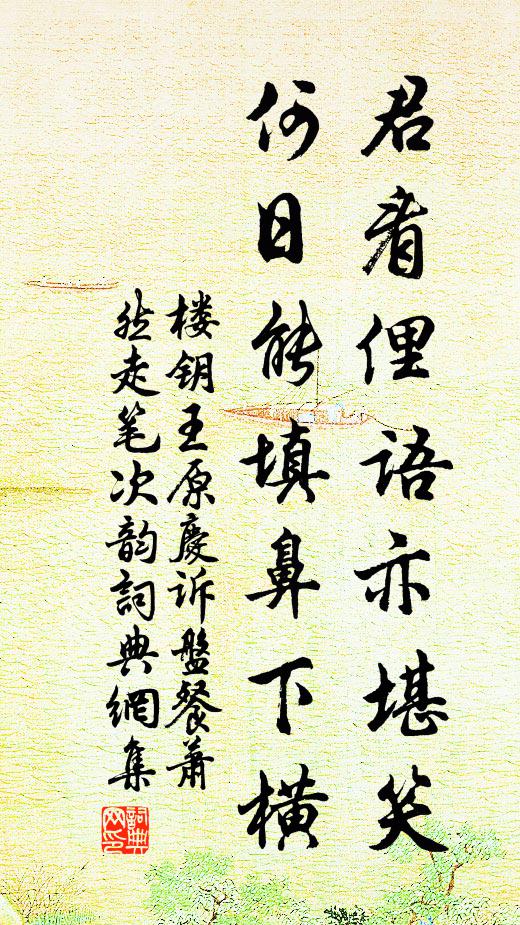 君看俚语亦堪笑
何日能填鼻下横
楼钥王原庆诉盘餐萧
然走笔次韵词典网集
詞典
网印